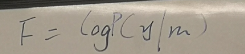 F = log P(y/m)